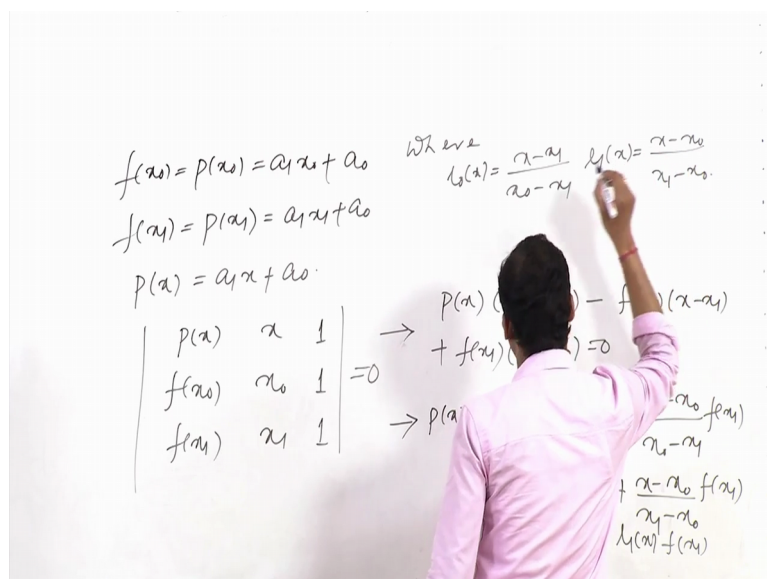 f(x₀) = P(x₀) = a₁x₀ + a₀
f(x₁) = P(x₁) = a₁x₁ + a₀
P(x) = a₁x + a₀.
| P(x) x 1 |
| f(x₀) x₀ 1 | = 0
| f(x₁) x₁ 1 |
Where
l₀(x) = (x-x₁)/(x₀-x₁) l₁(x) = (x-x₀)/(x₁-x₀).
→ P(x) ( ) - f( )(x-x₁)
+ f(x₁)( ) = 0
→ P(x
-x₀/(x₀-x₁) f(x₁)
+ (x-x₀)/(x₁-x₀) f(x₁)
l₁(x) f(x₁)